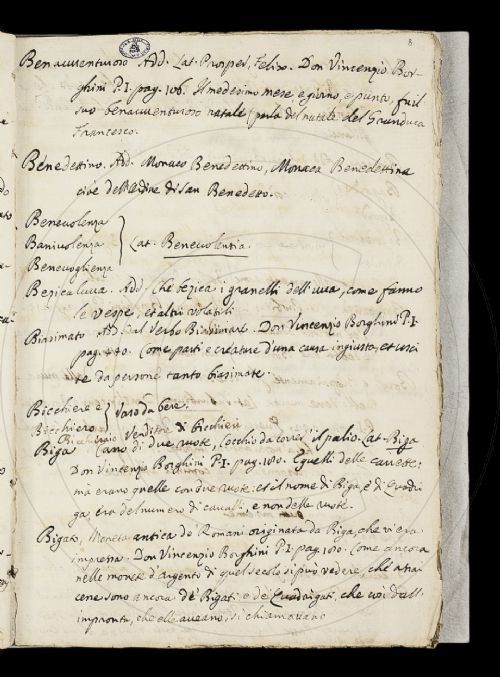 8
Benavventuroso Add. Lat. Prosper, Felix. Don Vincenzio Bor-
ghini P.I. pag. 106. Il medesimo mese e giorno, e punto, fu il
suo benavventuroso natale (parla del natale del Granduca
Francesco.
Benedettino. Add. Monaco Benedettino, Monaca Benedettina
cioè dell'Ordine di San Benedetto.
Benevolenza
Banivolenza
Benevoglienza
Lat. Benevolentia.
Bezzicaluva. Add. che bezzica i granelli dell'uva, come fanno
le vespe, et altri volatili
Biasimato Add. dal Verbo Biasimare. Don Vincenzio Borghini P.I.
pag. Come parti e creature d'una causa ingiusta, et usci-
te da persone tanto biasimate.
Bicchiere e
Bicchiero
Vaso da bere.
Bicchieraio Venditor di Bicchieri
Biga Carro di due ruote, Cocchio da correr il palio. Lat. Biga
Don Vincenzio Borghini P.I. pag. 180. E quelli delle carrette:
ma erano quelle con due ruote: et il nome di Biga, e di Quadri-
ga, era del numero di cavalli, e non delle ruote.
Bigato, Moneta antica de Romani originata da Biga, che vi era
impressa. Don Vincenzio Borghini P.I. pag. Come ancora
nelle monete d'argento di quel secolo si può vedere, che assai
cene sono ancora de' Bigati, e de' Quadrigati, che così dall'
impronta, che elle aveano, si chiamavano